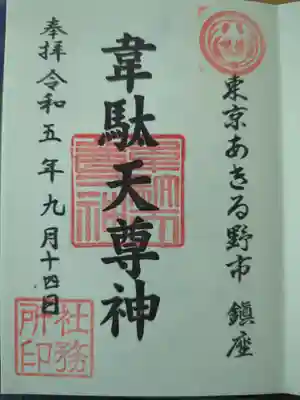 東京あきる野市 鎮座
韋駄天尊神
奉拝 令和五年九月十四日
社務所印